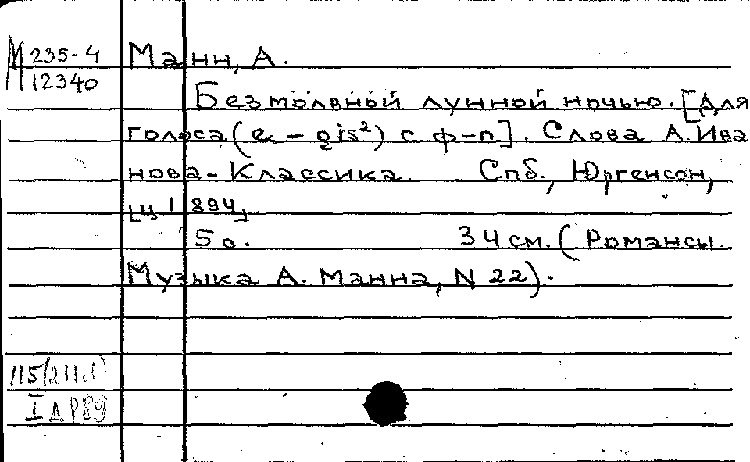 М 235-4
12340
Манн, А.
Безмолвной лунной ночью. [Для
голоса (e - gis²) с ф-п]. Слова А. Ива
нова-Классика. Спб., Юргенсон,
[ц 1894]
5 с. 34 см. (Романсы.
Музыка А. Манна, N 22).
I д Р89